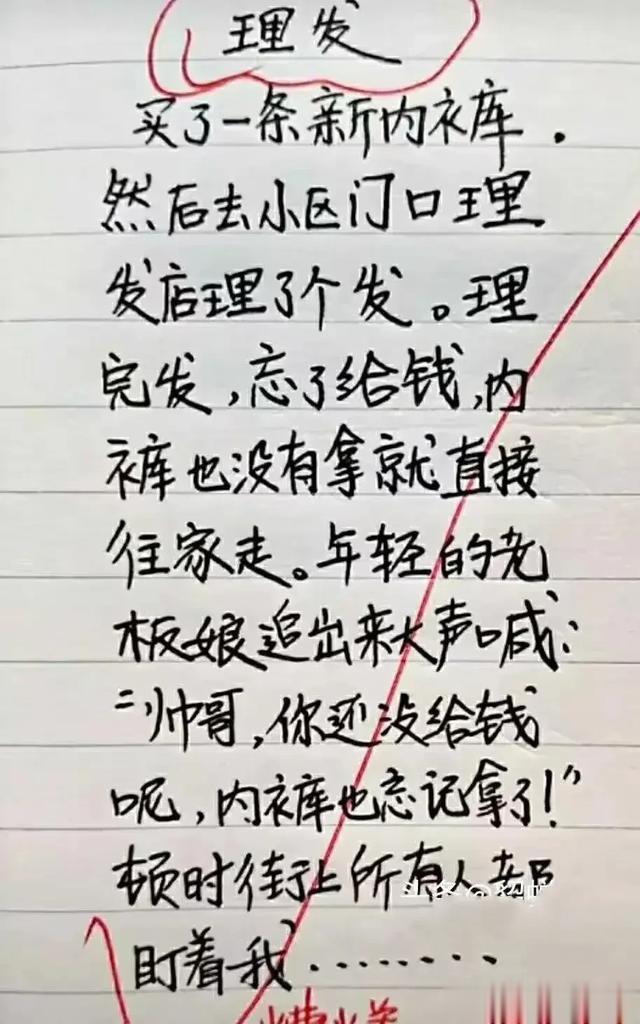 理发
买了一条新内裤库.
然后去小区门口理
发店理了个发。理
完发,忘了给钱,内
裤也没有拿就直接
往家走。年轻的老
板娘追出来大声喊:
"帅哥,你还没给钱
呢,内裤也忘记拿了!"
顿时街上所有人都
盯着我········